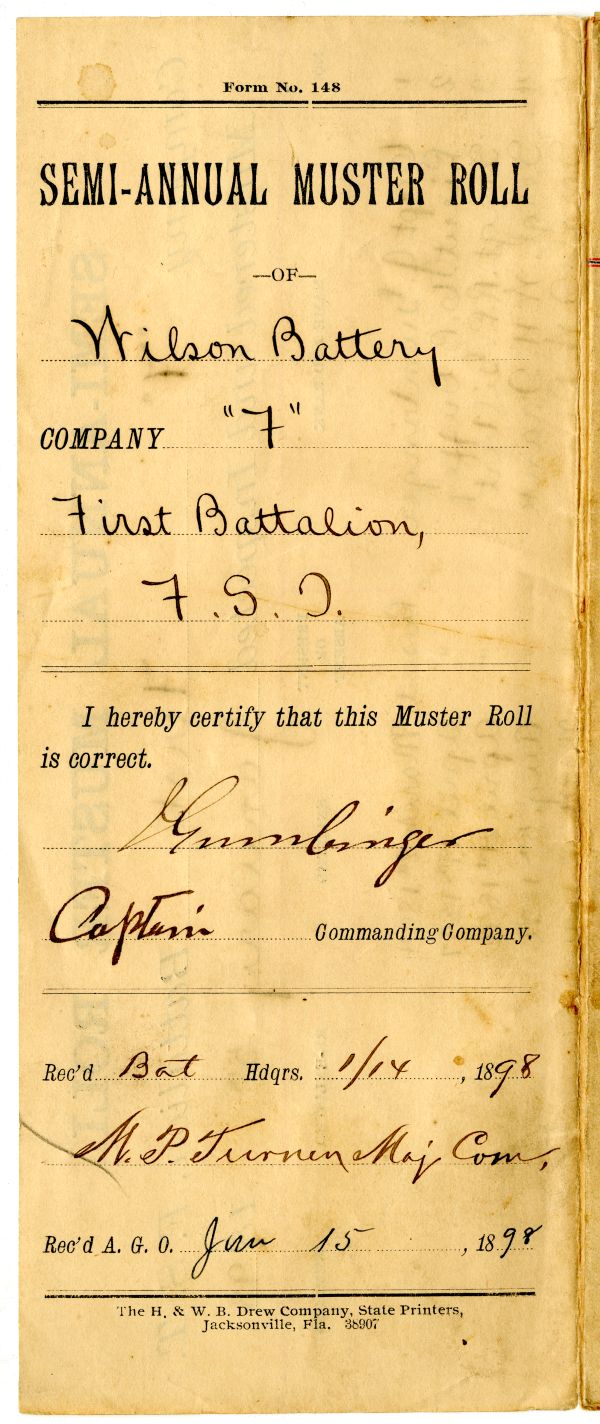 Form No. 148
SEMI-ANNUAL MUSTER ROLL
—OF—
Wilson Battery
COMPANY "F"
First Battalion,
F. S. T.
I hereby certify that this Muster Roll
is correct.
J Gumbinger
Captain Commanding Company.
Rec'd Bat Hdqrs. 1/14, 1898
W. P. Turner Maj Com,
Rec'd A. G. O. Jan 15, 1898
The H. & W. B. Drew Company, State Printers,
Jacksonville, Fla. 38907